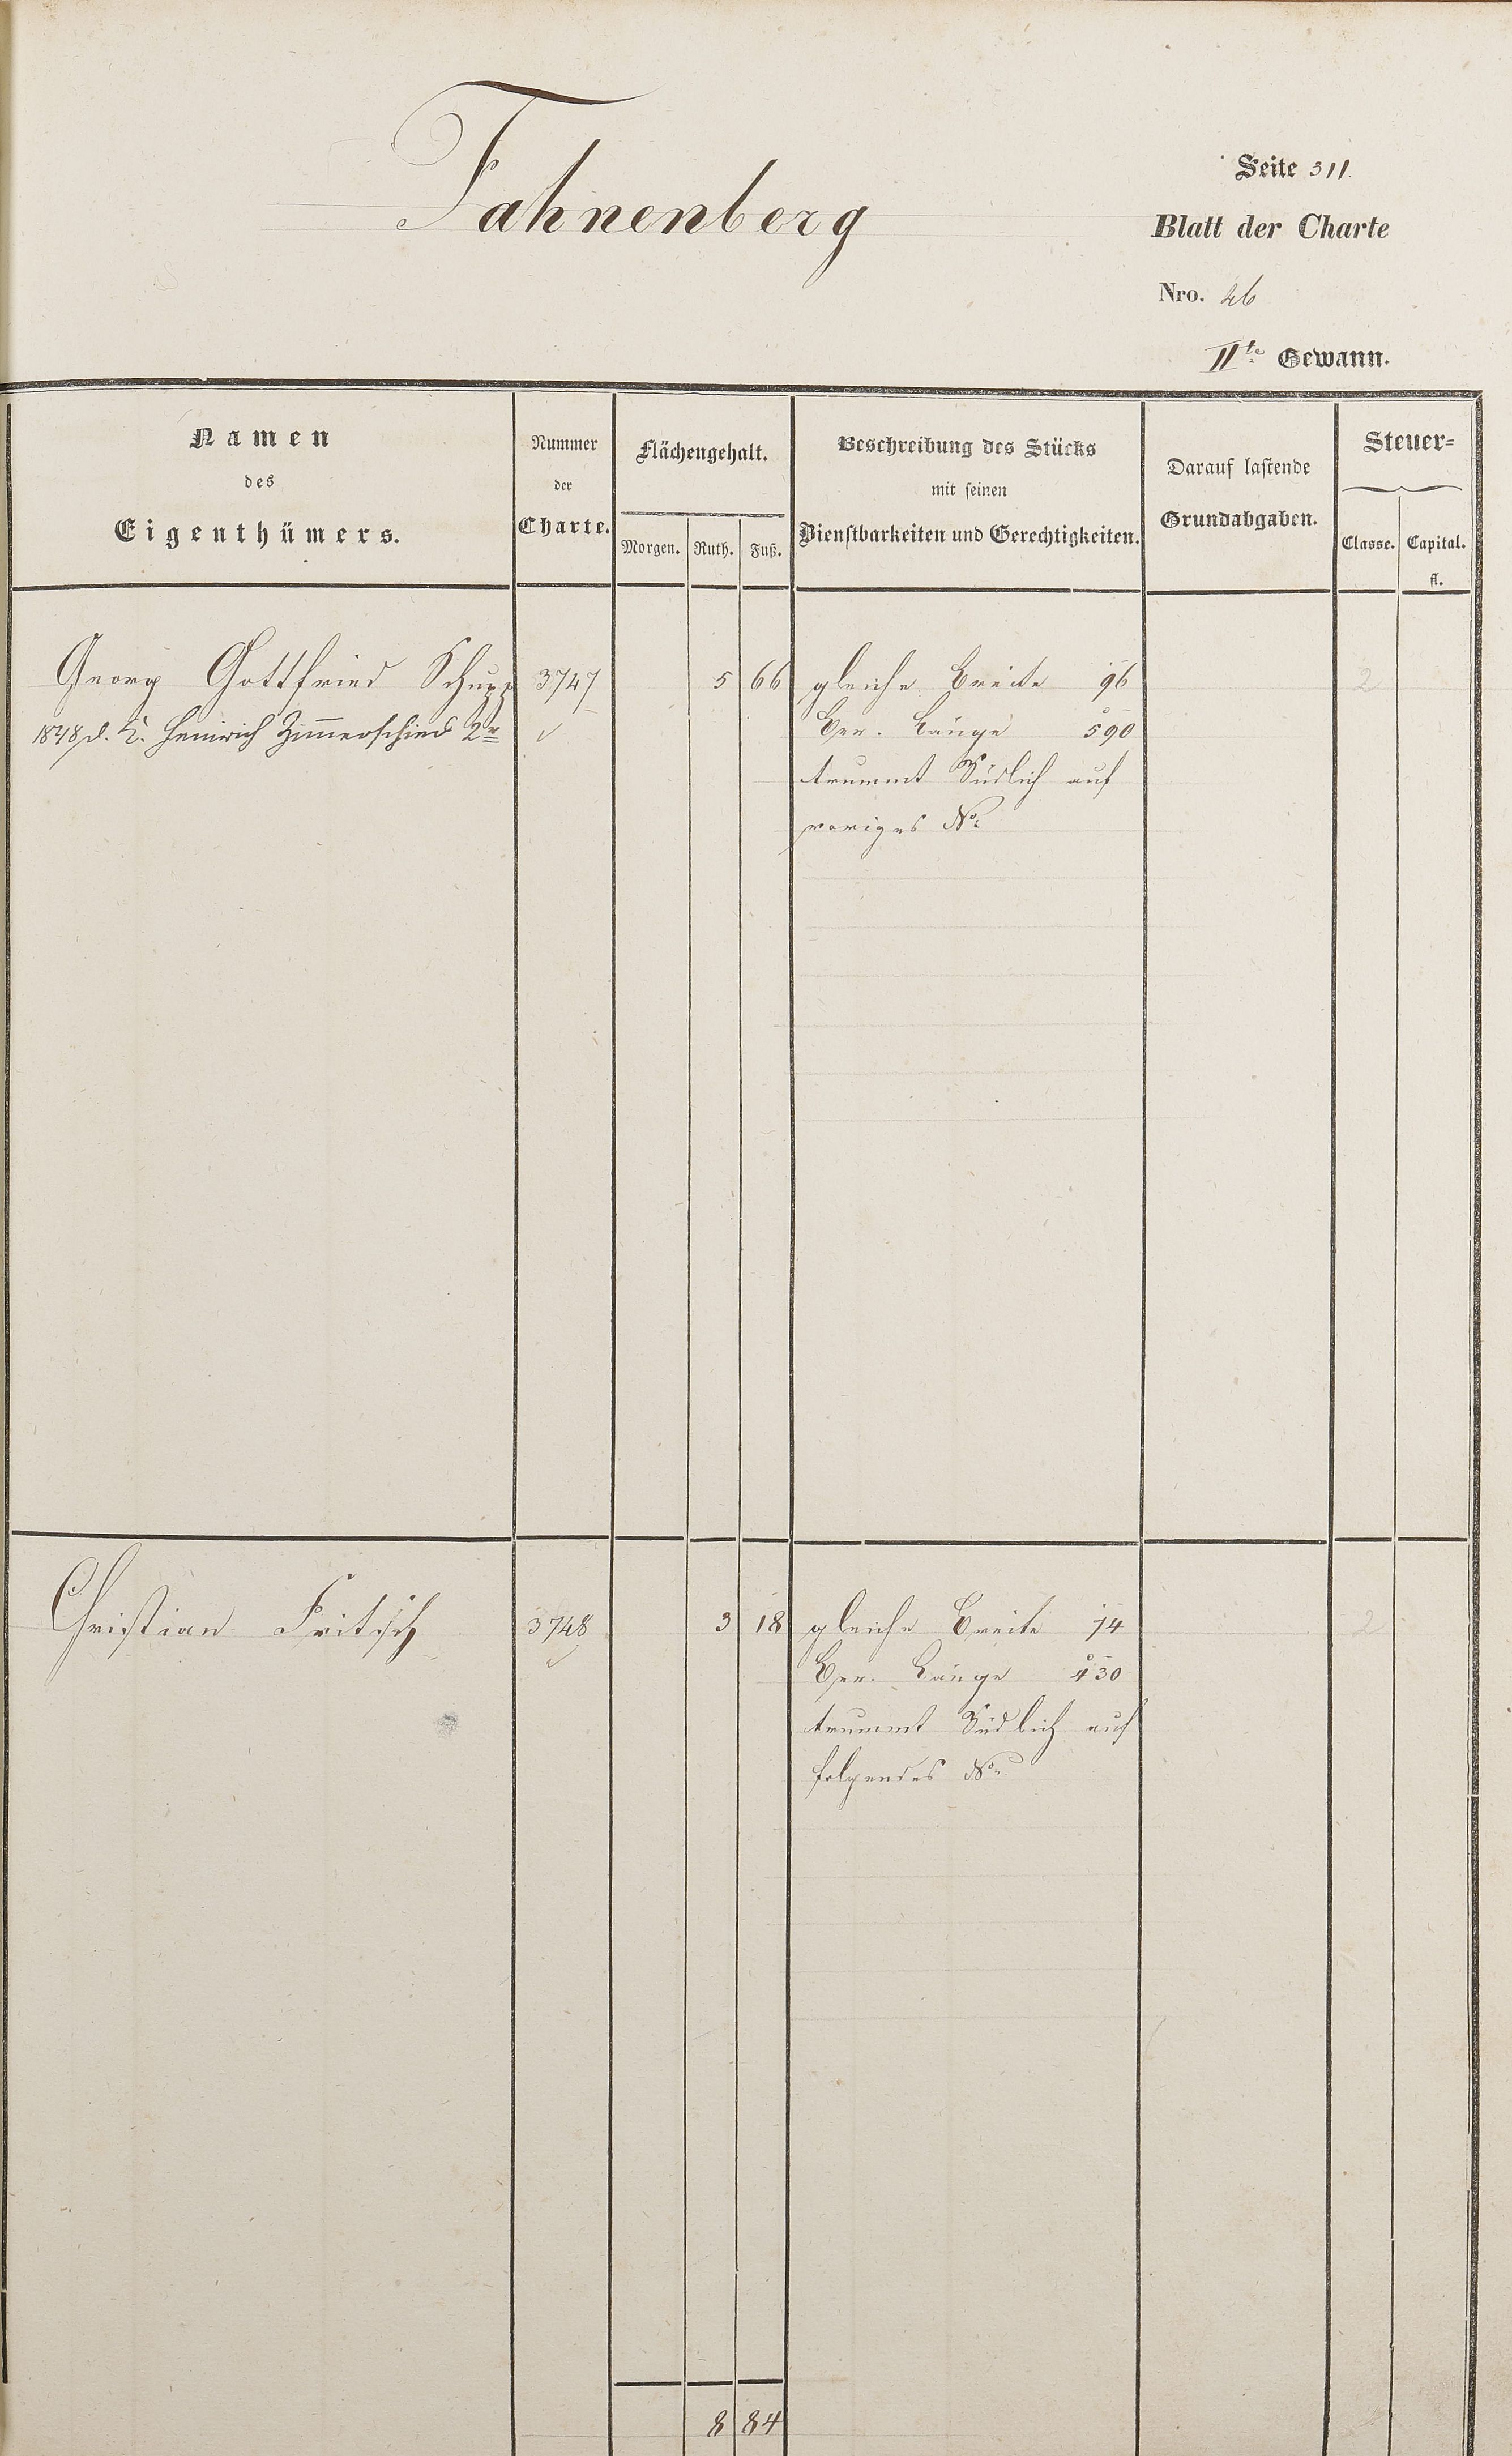 Fahnenberg
Seite 311.
Blatt der Charte
Nro. 26
IIte Gewann.
Namen
des
Eigenthümers.
Nummer
der
Charte.
Flächengehalt.
Morgen. Ruth. Fuß.
Beschreibung des Stücks
mit seinen
Dienstbarkeiten und Gerechtigkeiten.
Darauf lastende
Grundabgaben.
Steuer-
Classe. Capital.
fl.
Georg Gottfried Schupp 3747 5 66 gleiche Breite 96 2
1848 d. K. Heinrich Zim̅erschied 2r Ber. Länge 590
trummt Südlich auf
voriges No
Christian Fritsch 3748 3 18 gleiche Breite 74 2
Ber. Länge 430
trummt Südlich auf
folgendes No
8 84